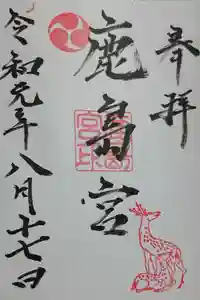 奉拝
鹿島宮
令和元年八月十七日